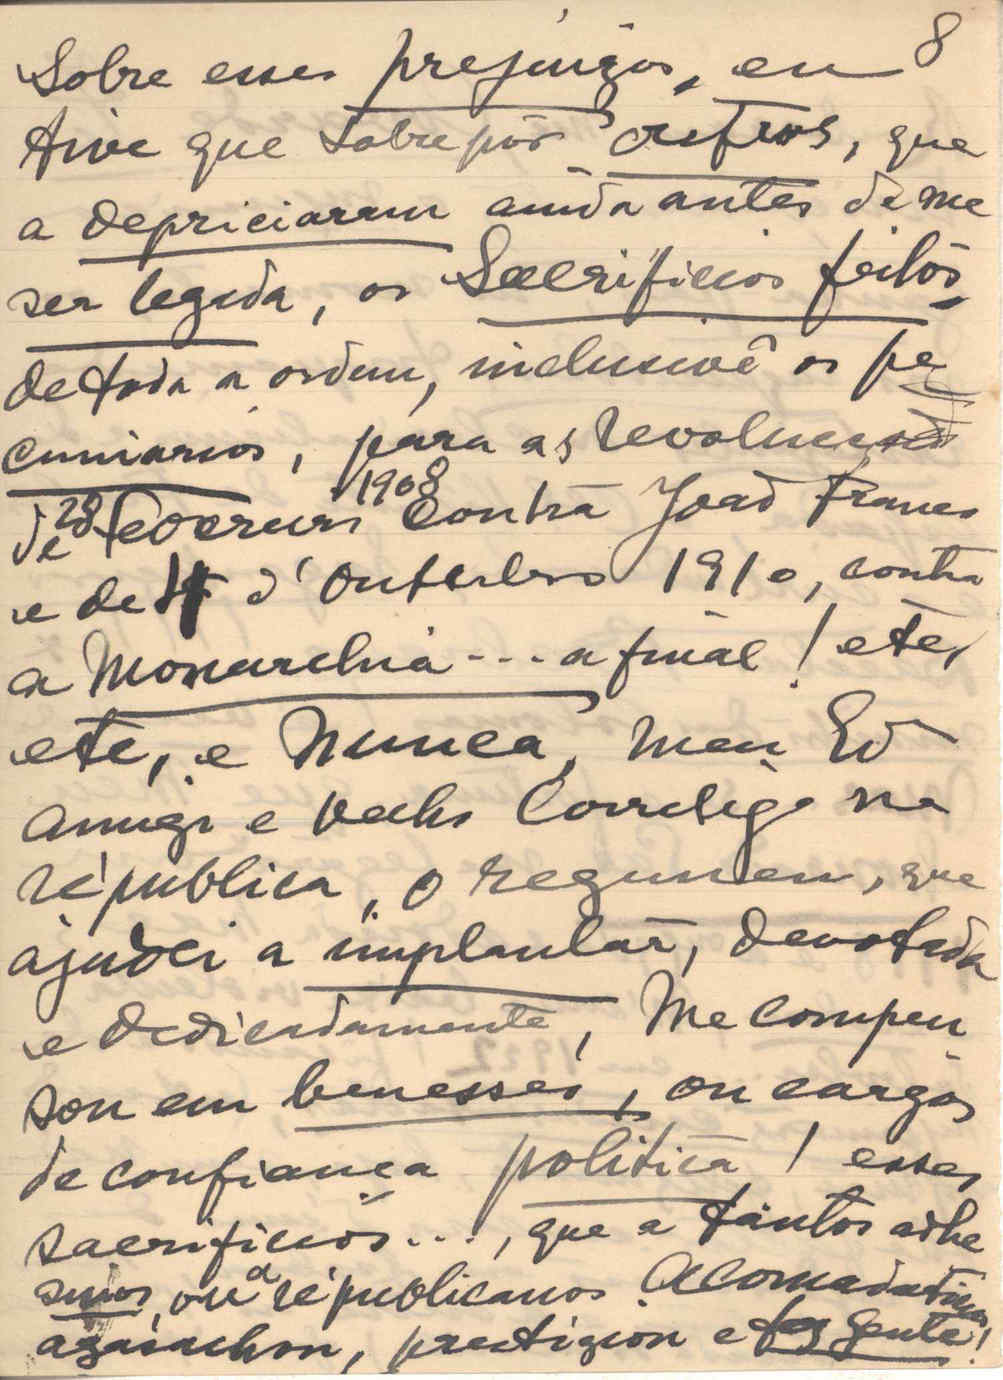 8
Sobre esses prejuizos, eu
tive que sobrepôr outros, que
a depriciaram ainda antes de me
ser legada, os Sacrificios feitos
de toda a ordem, inclusivé os pe
cuniarios, para as revoluções
de 28 Fevereiro 1908 contra João Franco
e de 4 d'Outubro 1910, contra
a Monarchia --- afinal! etc,
etc, e Nunca, meu Ex
amigo e velho Correlig. na
républica, o regimen, que
ajudei a implantar, devotada
e dedicadamente, me compen
sou em benesses, ou cargos
de confiança politica! esses
sacrificios..., que a tantos adhe
sivos, ou a républicanos acomodaticios
agasalhou, prestigiou e fez gente!